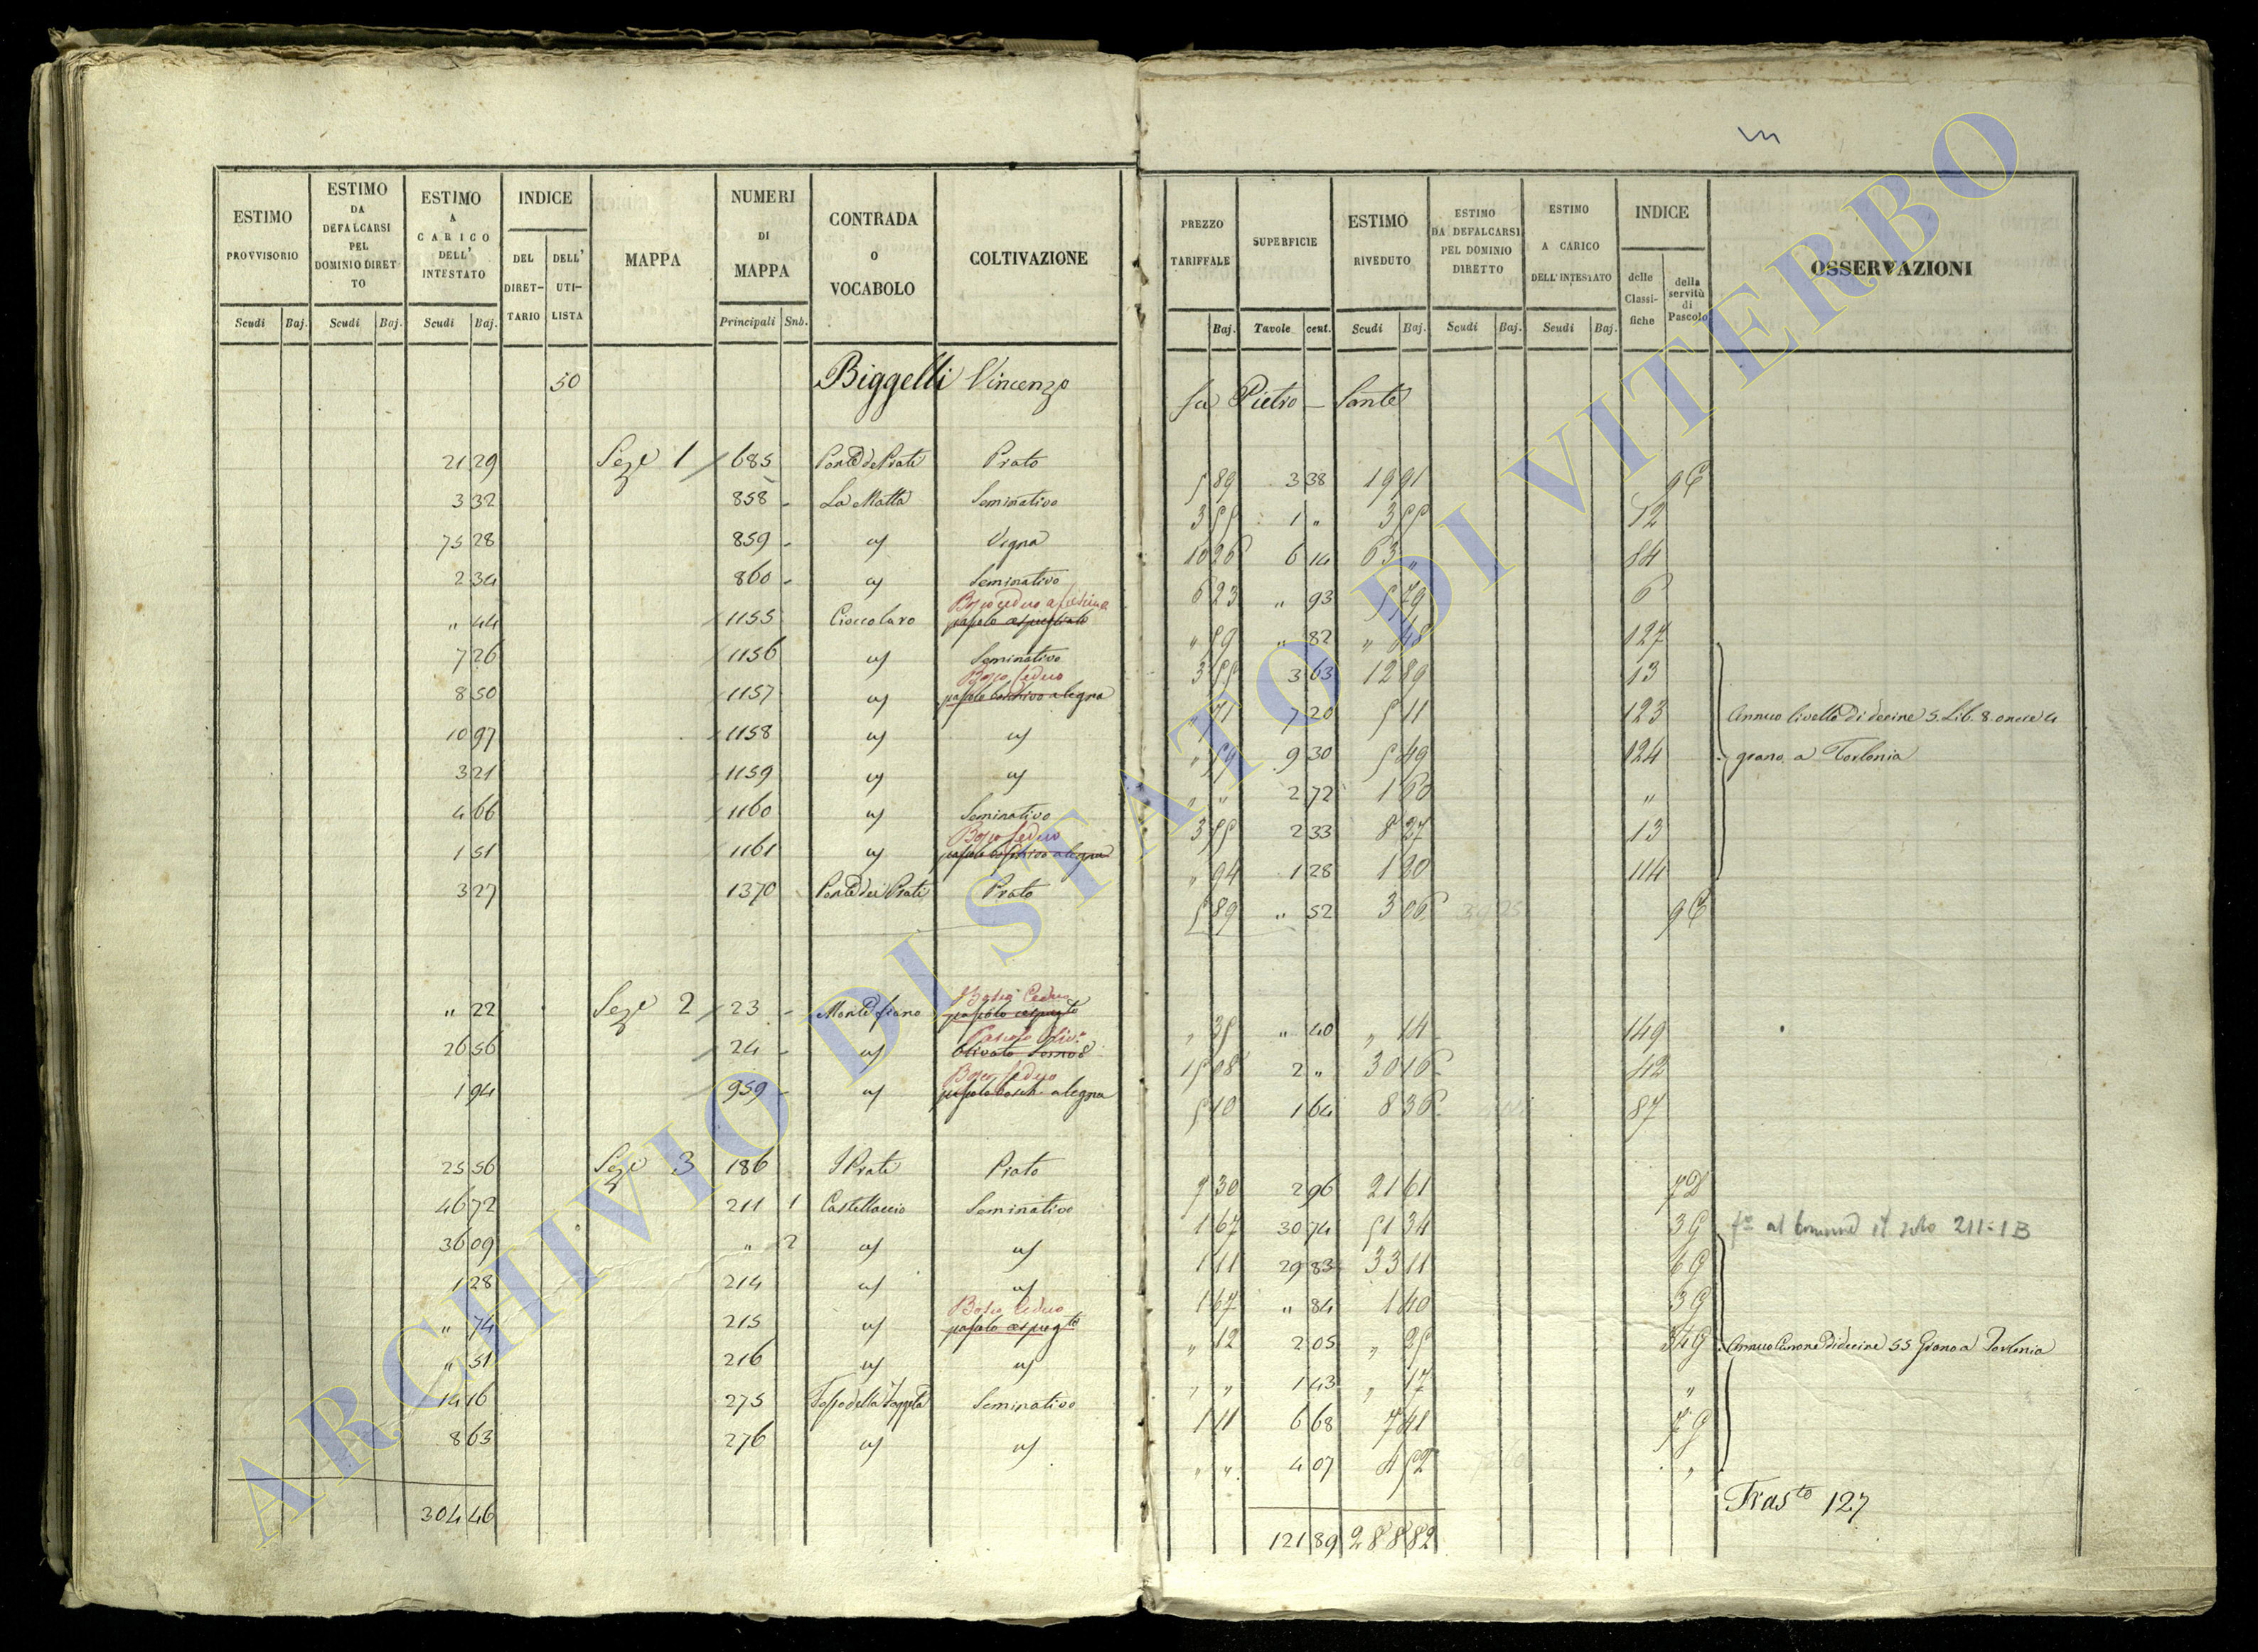 ESTIMO PROVVISORIO Scudi Baj. | ESTIMO DA DEFALCARSI PEL DOMINIO DIRETTO Scudi Baj. | ESTIMO A CARICO DELL' INTESTATO Scudi Baj. | INDICE DEL DIRETTARIO DELL' UTILISTA | MAPPA | NUMERI DI MAPPA Principali Sub. | CONTRADA o VOCABOLO | COLTIVAZIONE
50 Biggelli Vincenzo
21 29 Seze 1 685 Ponte de Prati Prato
3 32 858 La Matta Seminativo
75 28 859 Vigna
2 34 860 Seminativo
Bosco ceduo
" 44 1155 Cioccolaro pascolo cespugliato
7 26 1156 Seminativo
Bosco Ceduo
8 50 1157 pascolo boschivo a legna
10 97 1158
3 21 1159
4 66 1160 Seminativo
Bosco Ceduo
1 51 1161 pascolo boschivo a legna
3 27 1370 Ponte dei Prati Prato
Bosco Ceduo
" 22 Seze 2 23 Monte fiano
Pascolo Oliv.
26 56 24 Olivato
Bosco Ceduo
1 94 959 pascolo bosch. a legna
25 56 Seze 3 186 I Prati Prato
46 72 211 1 Castellaccio Seminativo
36 09 " 2
1 28 214
Bosco Ceduo
" 74 215 pascolo cespugto
" 51 216
14 16 275 Seminativo
8 63 276
304 46
PREZZO TARIFFALE Baj. | SUPERFICIE Tavole cent. | ESTIMO RIVEDUTO Scudi Baj. | ESTIMO DA DEFALCARSI PEL DOMINIO DIRETTO Scudi Baj. | ESTIMO A CARICO DELL' INTESTATO Scudi Baj. | INDICE delle Classifiche della servitù di Pascolo | OSSERVAZIONI
fu Pietro — Sante
5 89 3 38 19 91
3 55 1 " 3 55 12
10 26 6 14 63 " 84
6 23 " 93 5 79 6
" 59 " 82 " 48 127
3 55 3 63 12 89 13
" 71 7 20 5 11 123 Annuo livello di decine 5. Lib. 8. once 4
" 59 9 30 5 49 124 grano a Torlonia
" " 2 72 1 60 "
3 55 2 33 8 27 13
" 94 1 28 1 20 114
5 89 " 52 3 06
" 35 " 40 " 14 149
15 08 2 " 30 16 42
5 10 1 64 8 36 87
7 30 2 96 21 61 7 D
1 67 30 74 51 34 3 G al Comune 211=1B
1 11 29 83 33 11 6 G
1 67 " 84 1 40 3 G
" 12 2 05 " 25 34 G Annuo Canone di decine 55 Grano a Torlonia
" " 1 43 " 17 "
1 11 6 68 7 41 7 G
" " 4 07 4 52 "
Trasto 127
121 89 288 82
ARCHIVIO DI STATO DI VITERBO